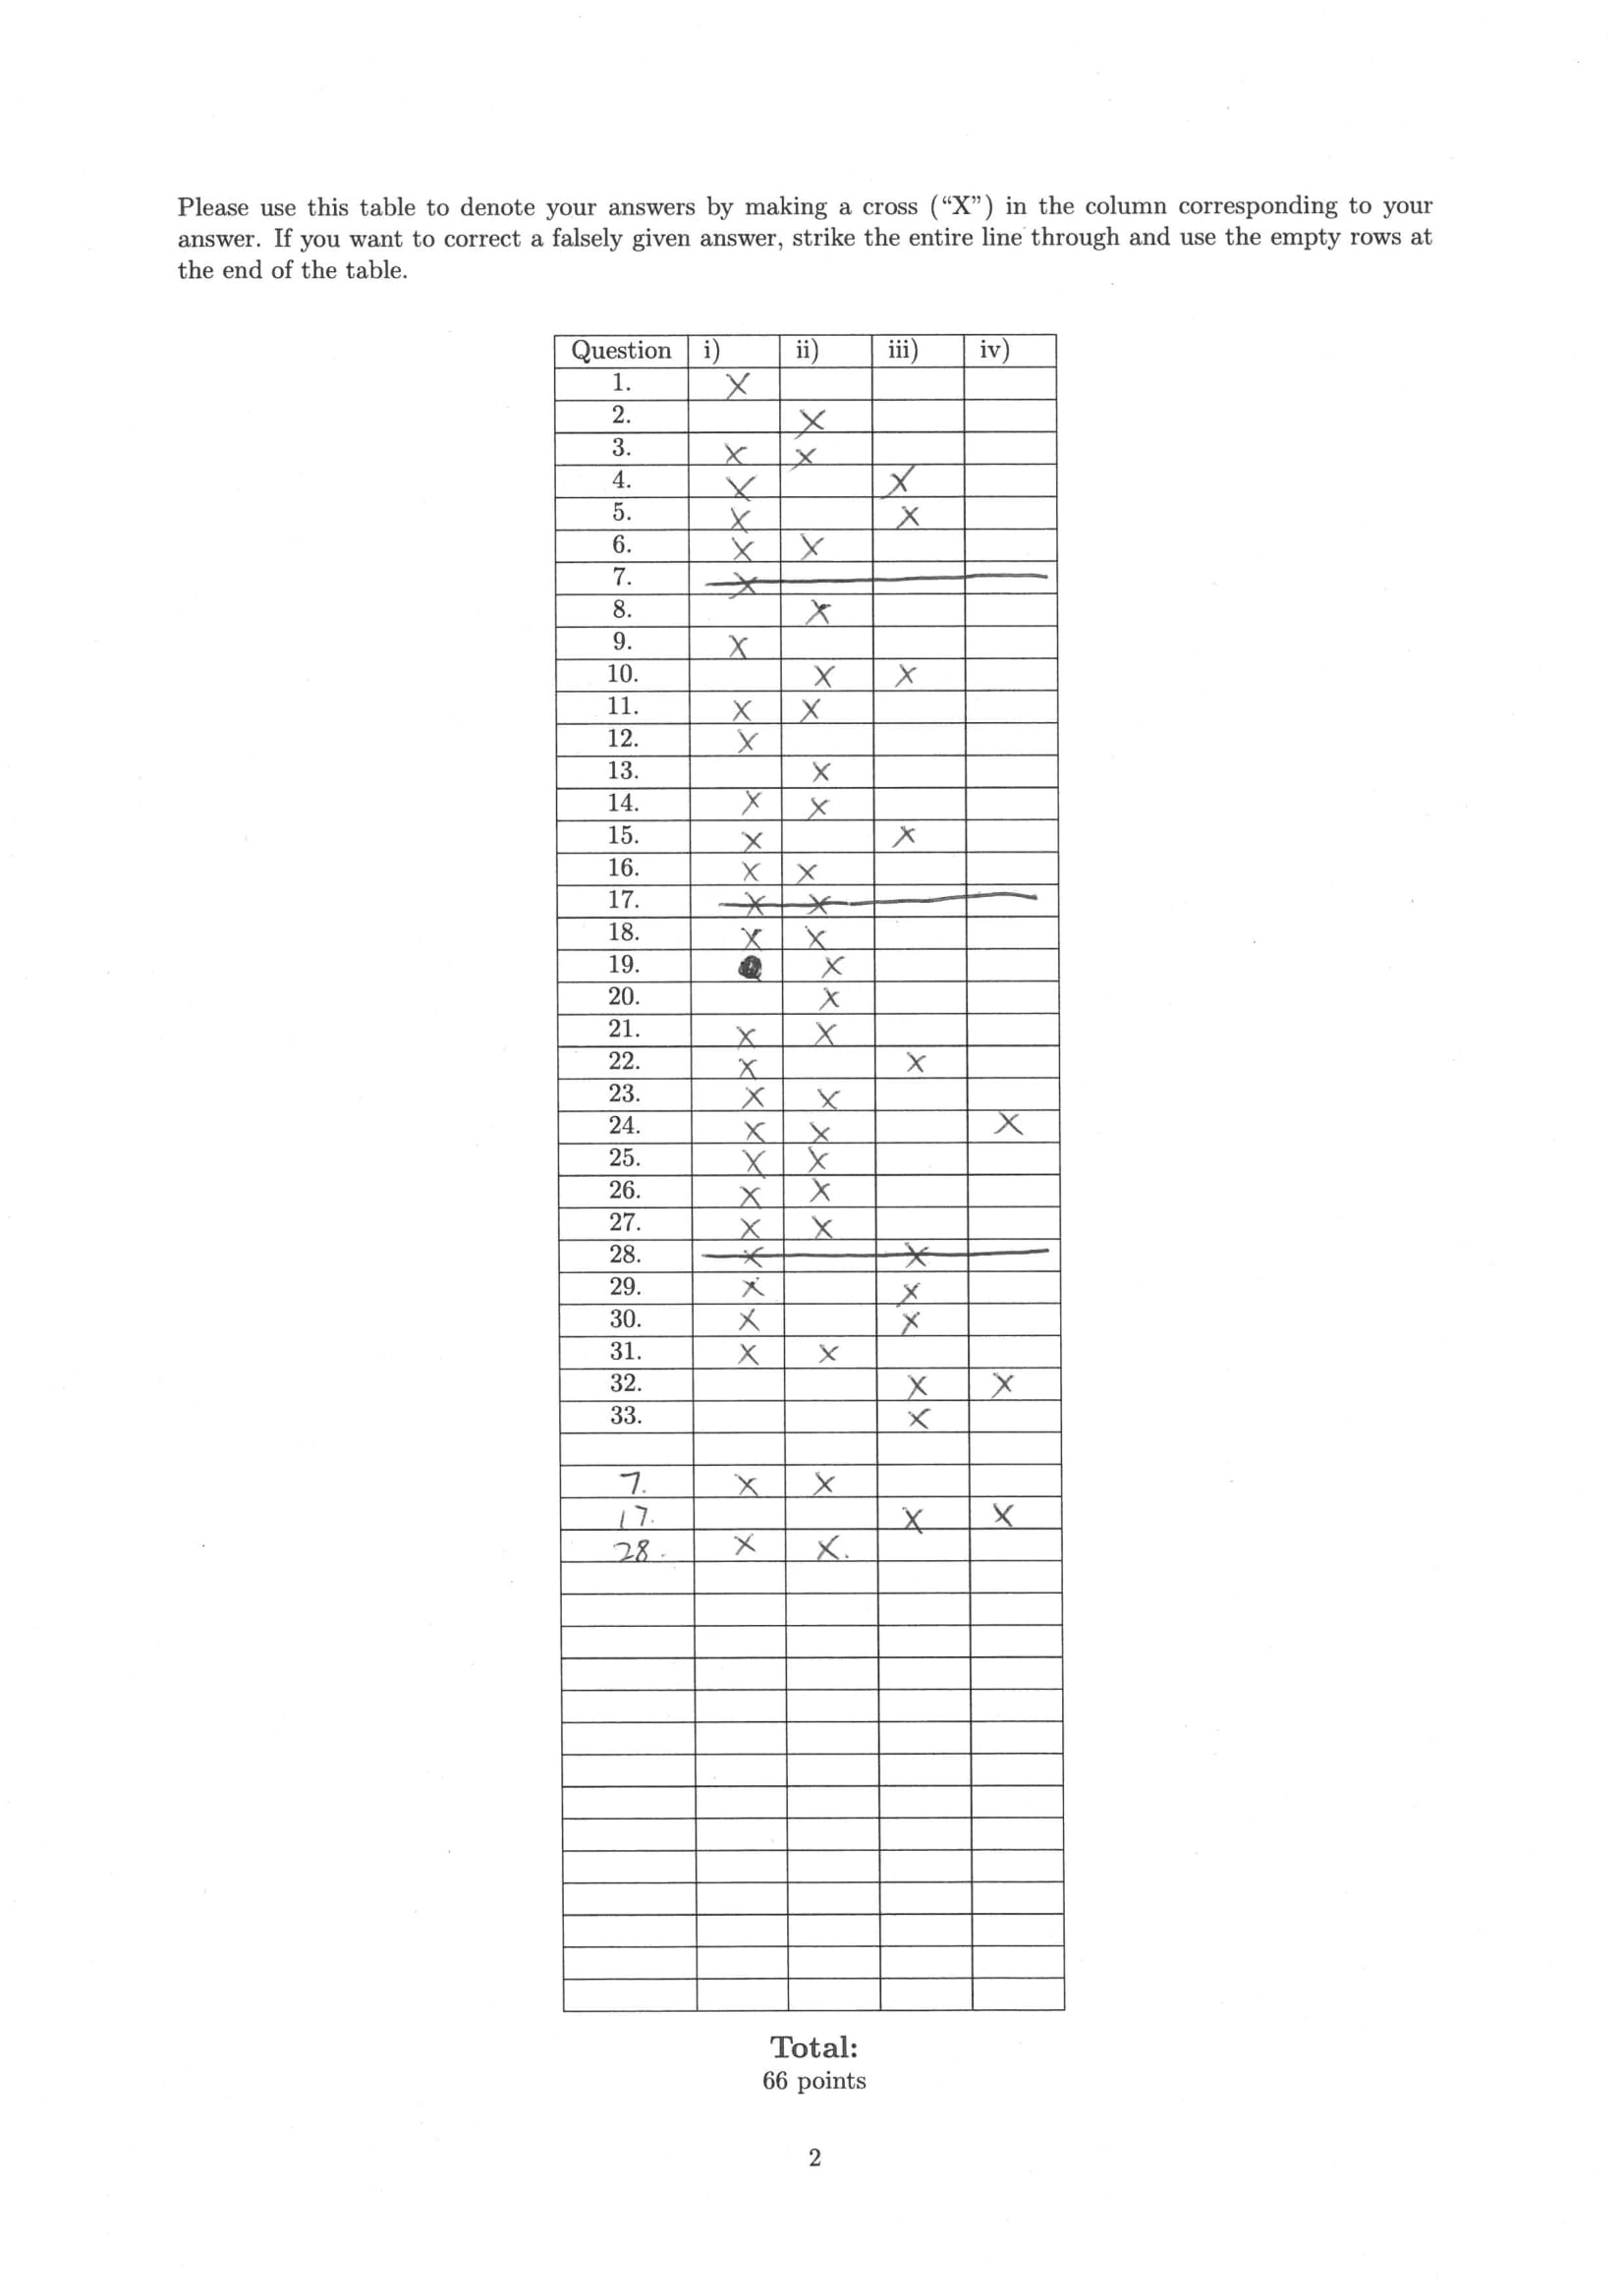 Please use this table to denote your answers by making a cross (“X”) in the column corresponding to your
answer. If you want to correct a falsely given answer, strike the entire line through and use the empty rows at
the end of the table.
Question i) ii) iii) iv)
1. X
2. X
3. X X
4. X X
5. X X
6. X X
7. X
8. X
9. X
10. X X
11. X X
12. X
13. X
14. X X
15. X X
16. X X
17. X X
18. X X
19. X
20. X
21. X X
22. X X
23. X X
24. X X X
25. X X
26. X X
27. X X
28. X X
29. X X
30. X X
31. X X
32. X X
33. X
7. X X
17. X X
28. X X.
Total:
66 points
2